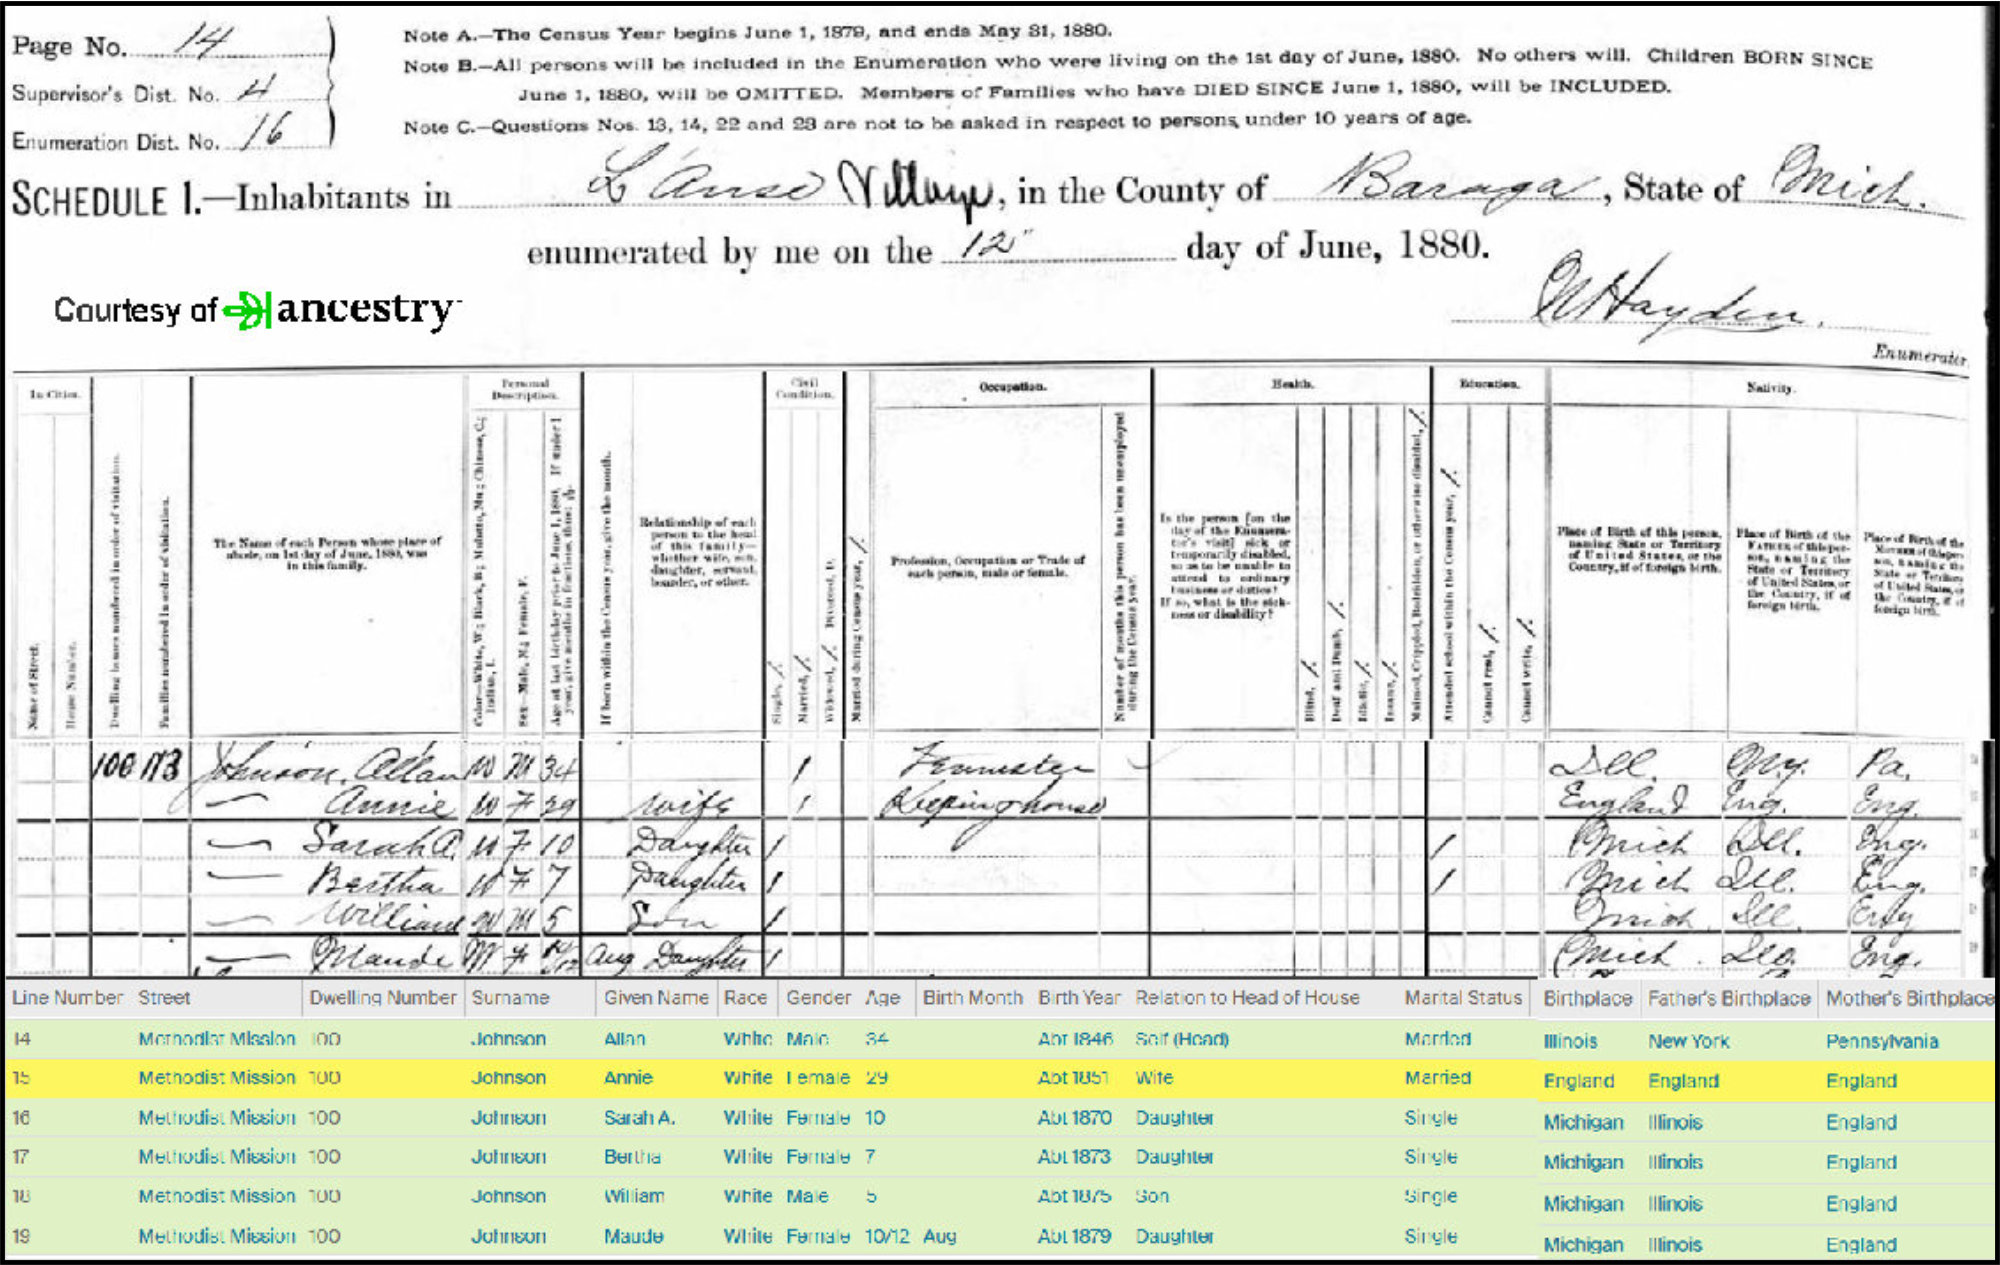 Page No. 14
Supervisor's Dist. No. 4
Enumeration Dist. No. 16
Note A.—The Census Year begins June 1, 1879, and ends May 31, 1880.
Note B.—All persons will be included in the Enumeration who were living on the 1st day of June, 1880. No others will. Children BORN SINCE
June 1, 1880, will be OMITTED. Members of Families who have DIED SINCE June 1, 1880, will be INCLUDED.
Note C.—Questions Nos. 13, 14, 22 and 23 are not to be asked in respect to persons under 10 years of age.
SCHEDULE 1.—Inhabitants in L'Anse Village, in the County of Baraga, State of Mich.
enumerated by me on the 12" day of June, 1880.
Hayden,
Enumerator.
Courtesy of ancestry
In Cities.
Personal Description.
Civil Condition.
Occupation.
Health.
Education.
Nativity.
Name of Street.
House Number.
Dwelling houses numbered in order of visitation.
Families numbered in order of visitation.
The Name of each Person whose place of abode, on 1st day of June, 1880, was in this family.
Color—White, W.; Black, B.; Mulatto, Mu.; Chinese, C.; Indian, I.
Sex—Male, M.; Female, F.
Age at last birthday prior to June 1, 1880. If under 1 year, give months in fractions, thus: 3/12
If born within the Census year, give the month.
Relationship of each person to the head of this family—whether wife, son, daughter, servant, boarder, or other.
Single, /.
Married, /.
Widowed, /. Divorced, D.
Married during Census year, /.
Profession, Occupation or Trade of each person, male or female.
Number of months this person has been unemployed during the Census year.
Is the person [on the day of the Enumerator's visit] sick or temporarily disabled, so as to be unable to attend to ordinary business or duties? If so, what is the sickness or disability?
Blind, /.
Deaf and Dumb, /.
Idiotic, /.
Insane, /.
Maimed, Crippled, Bedridden, or otherwise disabled, /.
Attended school within the Census year, /.
Cannot read, /.
Cannot write, /.
Place of Birth of this person, naming State or Territory of United States, or the Country, if of foreign birth.
Place of Birth of the FATHER of this person, naming the State or Territory of United States, or the Country, if of foreign birth.
Place of Birth of the MOTHER of this person, naming the State or Territory of United States, or the Country, if of foreign birth.
100 113 Johnson, Allan W M 34 / Teamster Ill. N.Y. Pa.
— Annie W F 29 Wife / Keeping house England Eng. Eng.
— Sarah A. W F 10 Daughter / / Mich Ill. Eng.
— Bertha W F 7 Daughter / / Mich Ill. Eng.
— William W M 5 Son / Mich Ill Eng
— Maude W F 10/12 Aug Daughter / Mich. Ill. Eng.
Line Number Street Dwelling Number Surname Given Name Race Gender Age Birth Month Birth Year Relation to Head of House Marital Status Birthplace Father's Birthplace Mother's Birthplace
14 Methodist Mission 100 Johnson Allan White Male 34 Abt 1846 Self (Head) Married Illinois New York Pennsylvania
15 Methodist Mission 100 Johnson Annie White Female 29 Abt 1851 Wife Married England England England
16 Methodist Mission 100 Johnson Sarah A. White Female 10 Abt 1870 Daughter Single Michigan Illinois England
17 Methodist Mission 100 Johnson Bertha White Female 7 Abt 1873 Daughter Single Michigan Illinois England
18 Methodist Mission 100 Johnson William White Male 5 Abt 1875 Son Single Michigan Illinois England
19 Methodist Mission 100 Johnson Maude White Female 10/12 Aug Abt 1879 Daughter Single Michigan Illinois England